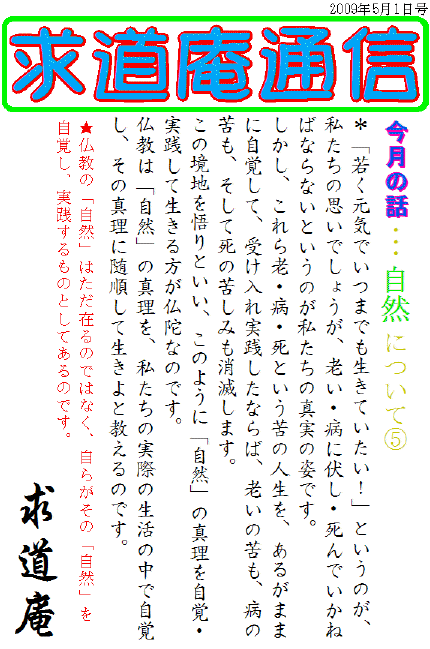 2009年5月1日号
求道庵通信
今月の話…自然について⑤
＊「若く元気でいつまでも生きていたい！」というのが、
私たちの思いでしょうが、老い・病に伏し・死んでいかね
ばならないというのが私たちの真実の姿です。
しかし、これら老・病・死という苦の人生を、あるがまま
に自覚して、受け入れ実践したならば、老いの苦も、病の
苦も、そして死の苦しみも消滅します。
この境地を悟りといい、このように「自然」の真理を自覚・
実践して生きる方が仏陀なのです。
仏教は「自然」の真理を、私たちの実際の生活の中で自覚
し、その真理に随順して生きよと教えるのです。
★仏教の「自然」はただ在るのではなく、自らがその「自然」を
自覚し、実践するものとしてあるのです。
求道庵